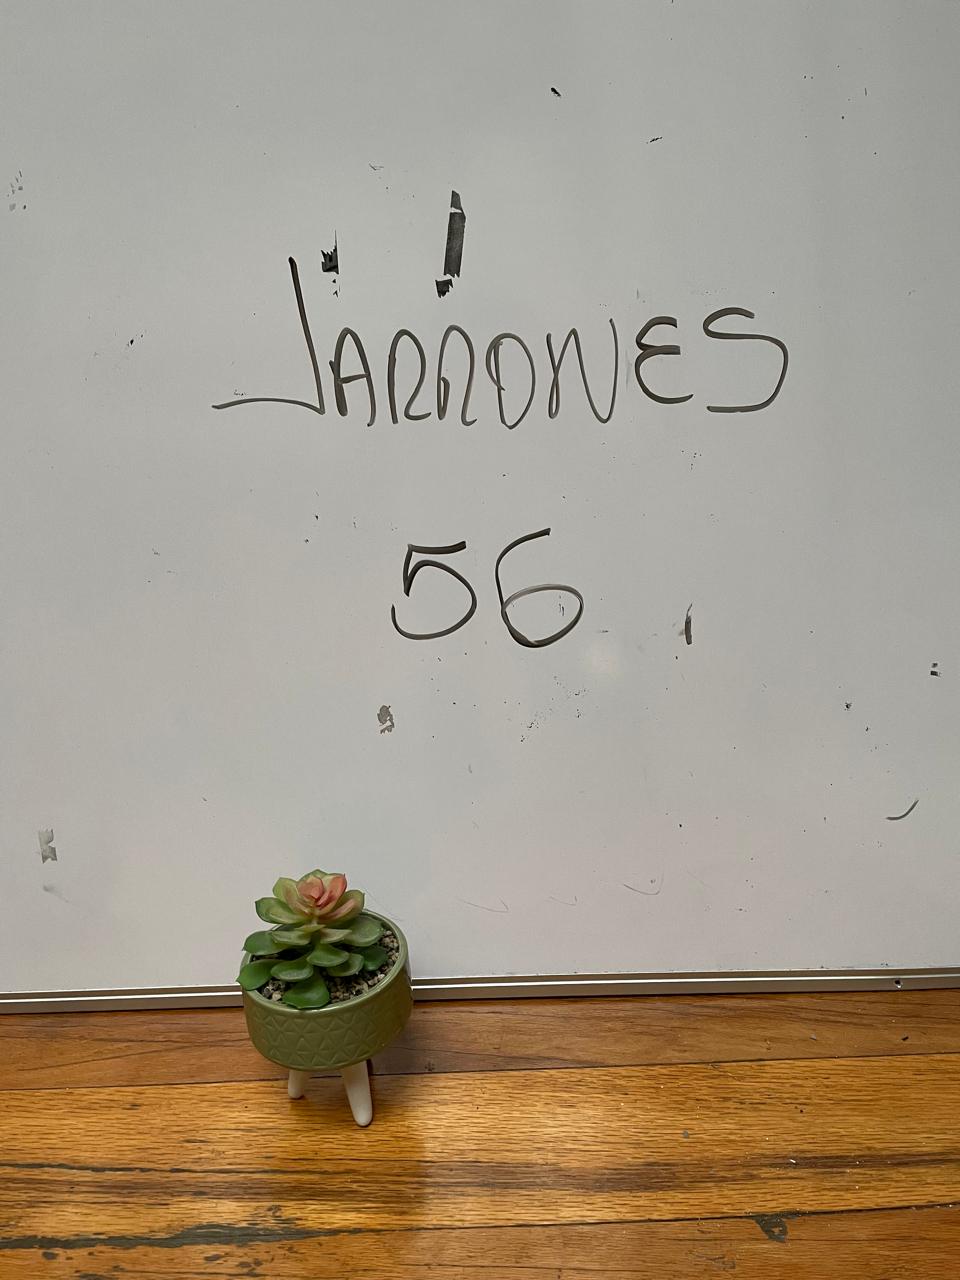 JARRONES
56